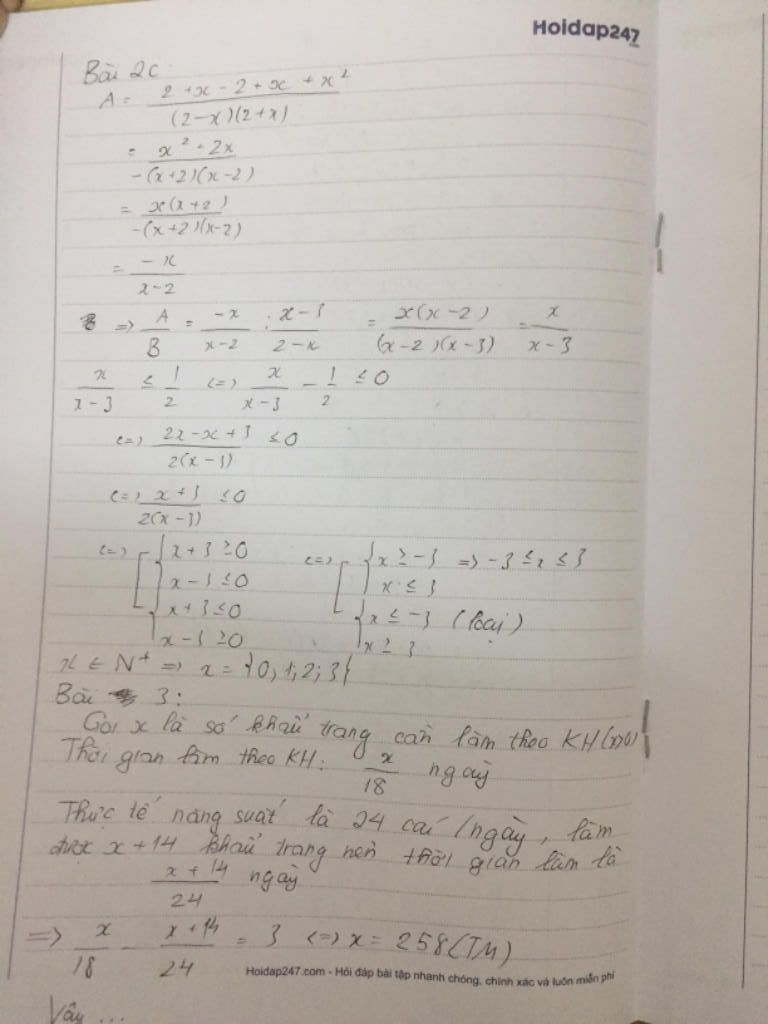 Hoidap247
Bài 2c:
A = (2 + x - 2 + x + x²) / ((2-x)(2+x))
= (x² + 2x) / (-(x+2)(x-2))
= x(x+2) / (-(x+2)(x-2))
= -x / (x-2)
=> A/B = -x/(x-2) : (x-3)/(2-x) = x(x-2) / ((x-2)(x-3)) = x/(x-3)
x/(x-3) ≤ 1/2 <=> x/(x-3) - 1/2 ≤ 0
<=> (2x-x+3) / (2(x-3)) ≤ 0
<=> (x+3) / (2(x-3)) ≤ 0
<=> [ { x+3 ≥ 0 <=> [ { x ≥ -3 => -3 ≤ x ≤ 3
x-3 ≤ 0 x ≤ 3
{ x+3 ≤ 0 { x ≤ -3 (loại)
x-3 ≥ 0 x ≥ 3
x ∈ N⁺ => x = {0,1;2;3}
Bài 3:
Gọi x là số khẩu trang cần làm theo KH (x>0)
Thời gian làm theo KH: x/18 ngày
Thực tế năng suất là 24 cái/ngày, làm
được x+14 khẩu trang nên thời gian làm là
(x+14)/24 ngày
=> x/18 - (x+14)/24 = 3 <=> x = 258 (TM)
Hoidap247.com - Hỏi đáp bài tập nhanh chóng, chính xác và luôn miễn phí
Vậy ...